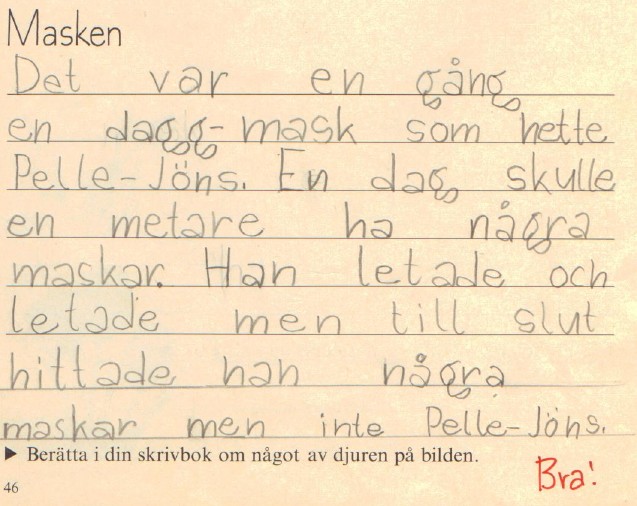 Masken
Det var en gång
en dagg-mask som hette
Pelle-Jöns. En dag skulle
en metare ha några
maskar. Han letade och
letade men till slut
hittade han några
maskar men inte Pelle-Jöns.
▶ Berätta i din skrivbok om något av djuren på bilden.
Bra!
46